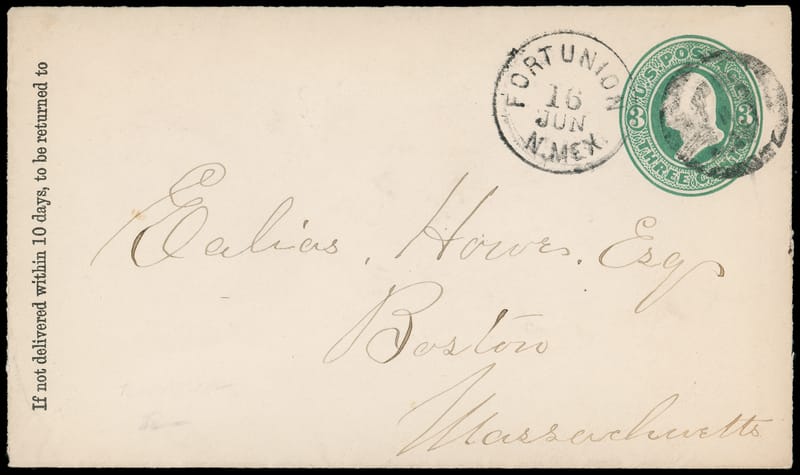 If not delivered within 10 days, to be returned to
FORT UNION
16
JUN
N.MEX.
U.S. POSTAGE
3 3
THREE CENTS
Ealias. Howes. Esq
Boston
Massachusetts